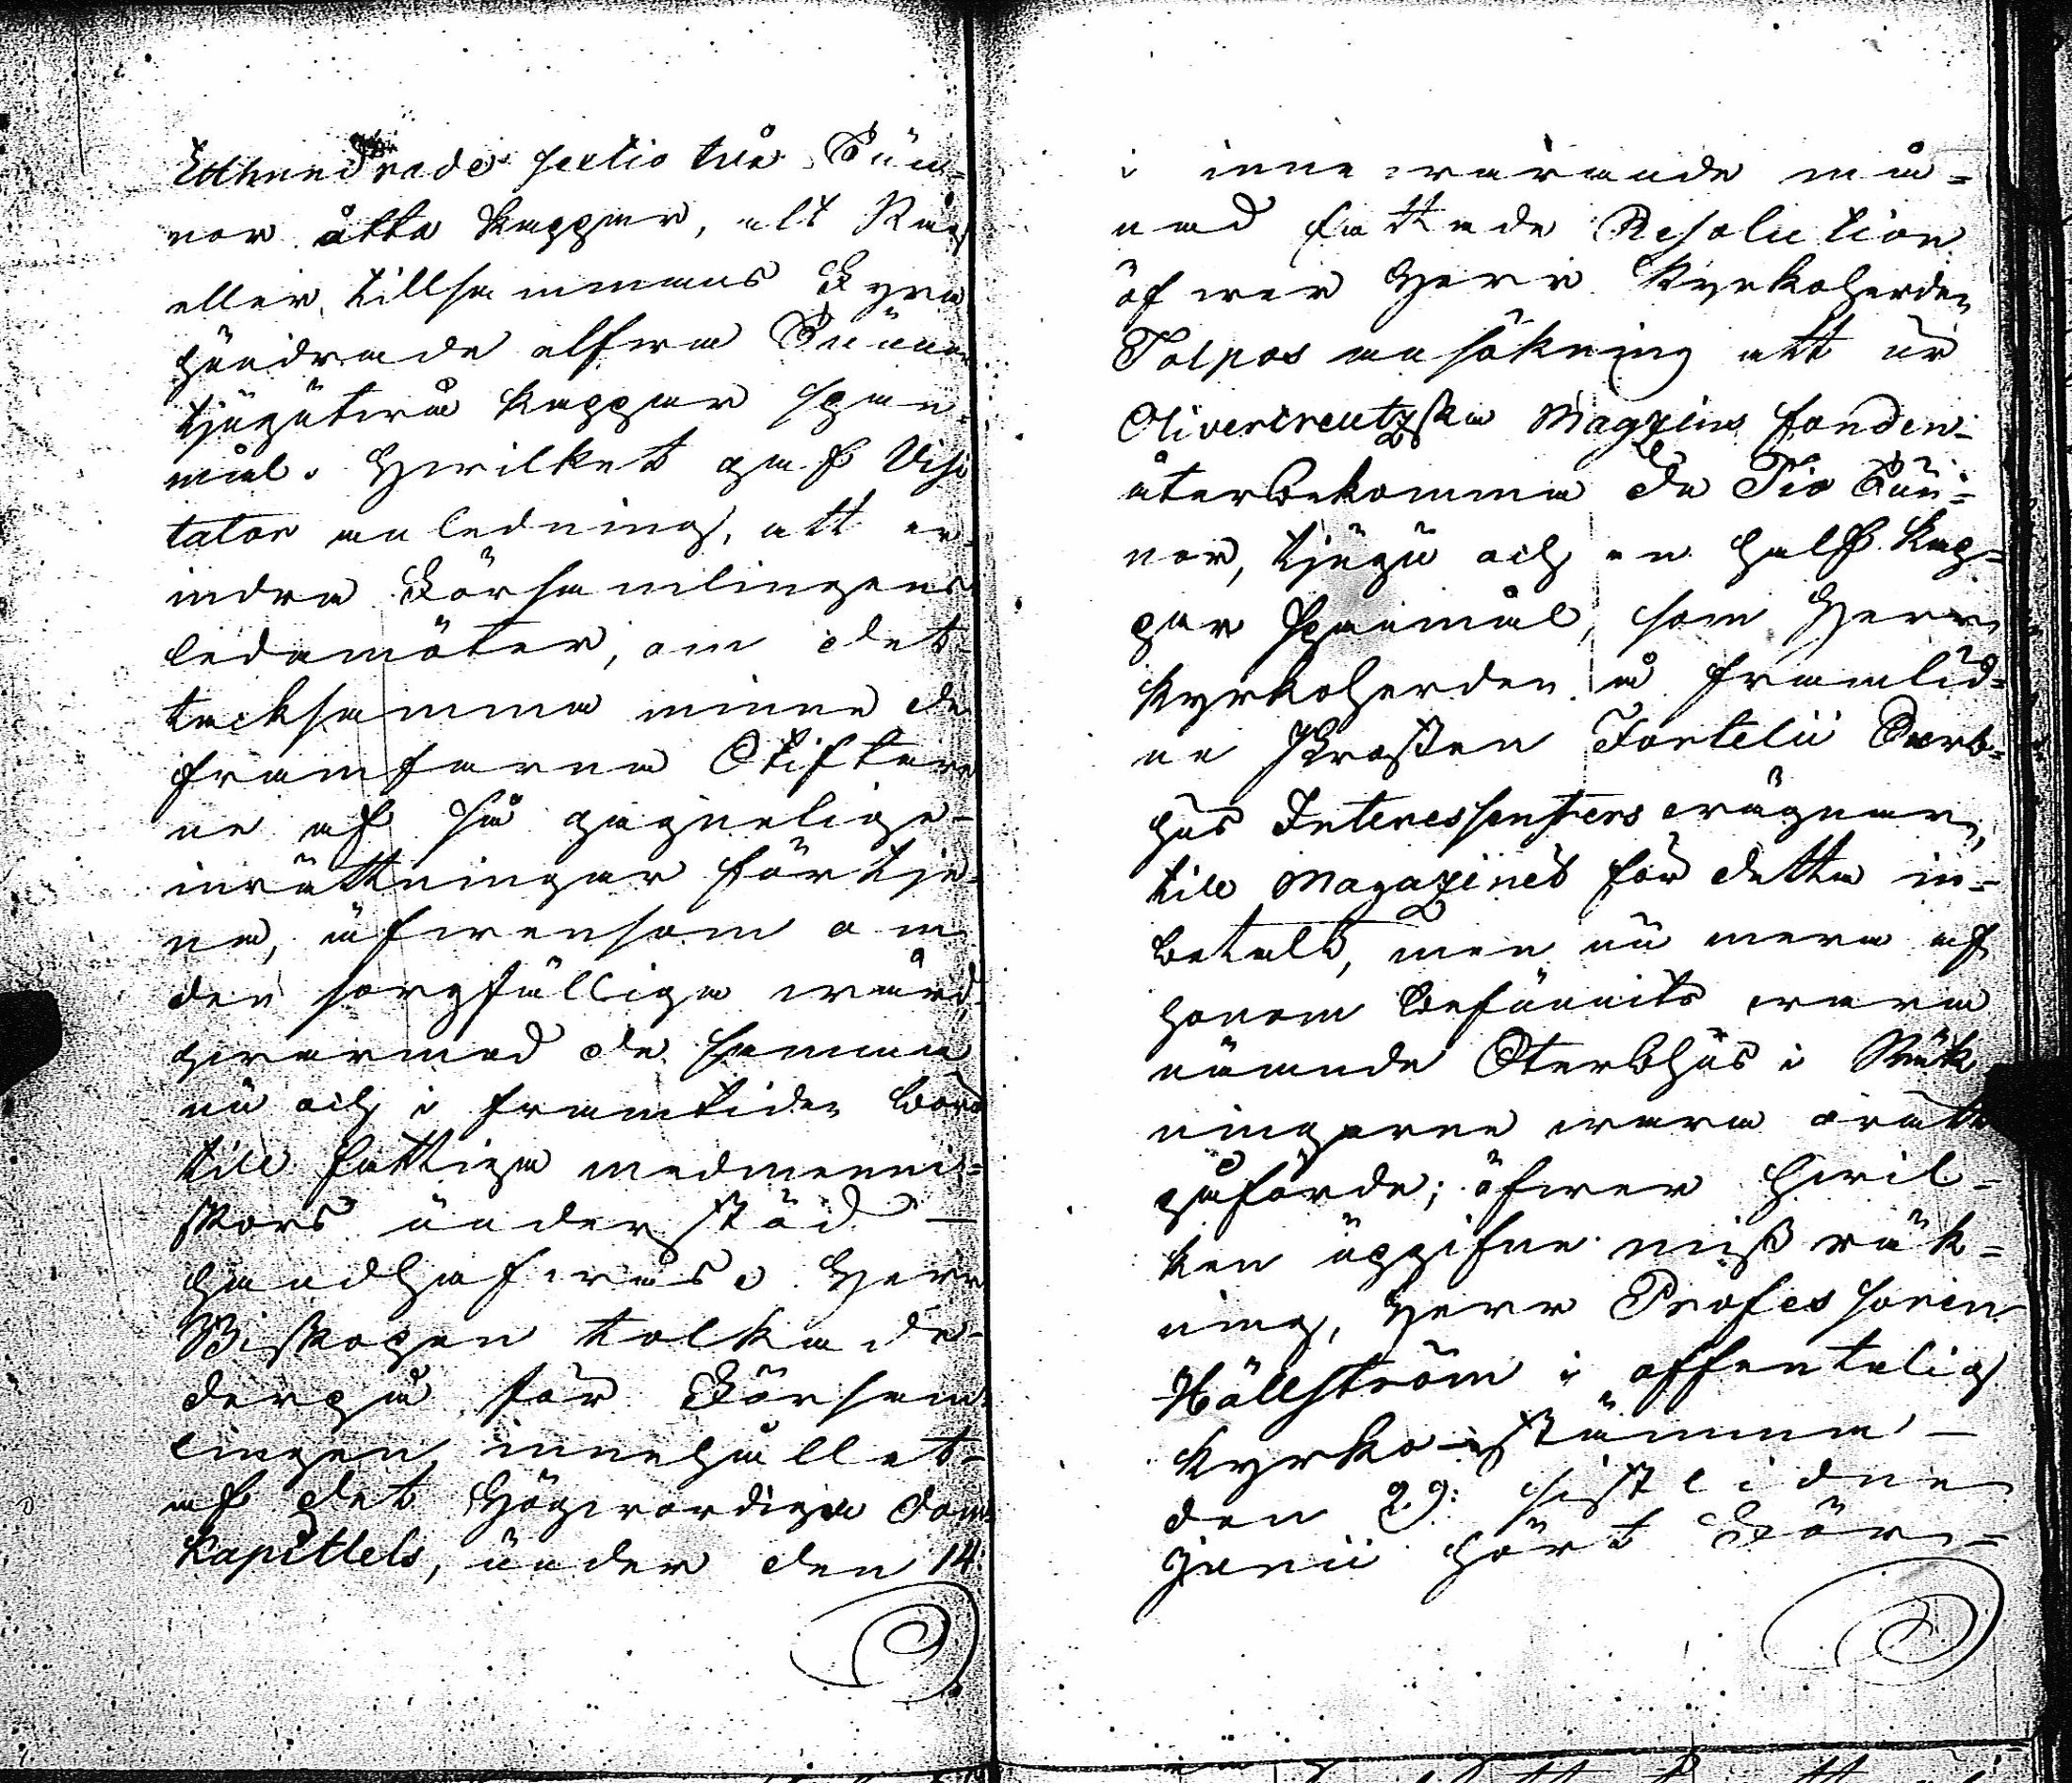 Etthundrade sextio två Tun-
nor åtta kappar, alt Råg
eller tillsammans Fyra
hundrade elfva Tunnor
tjugutvå kappar span-
mål. Hvilket gaf Visi
tator anledning, att er-
indra Församlingens
ledamöter, om det
tacksamma minne de
framfarna Stiftare
ne af så gagnelige
inrättningar förtje-
na, äfvensom om
den sorgfälliga vård,
hvarmed de samma
nu och i framtiden bord
till fattiga medmenni-
skors understöd
handhafvas. Herr
Biskopen tolkade
derpå för Försam-
lingen innehållet
af det Högvördiga Dom
kapitlels, under den 14:
i innevarande må-
nad fattade Resolution
öfver Herr Kyrkoherden
Tolpos ansökning att ur
Olivecreutzska Magazins fonden
återbekomma de Tio Tun-
nor, tjugu och en half kap-
par Spanmål, som Herr
Kyrkoherden å framlid-
ne Prosten Fortelii Sterb-
hus Interessenters vägnar,
till Magazinet för detta in-
betalt, men nu mera af
honom befunnits vara
nämnde Sterbhus i Räk
ningarne vara orätt
påförde; öfver hvil-
ken uppgifne missräk-
ning, Herr Professoren
Hällström i offentelig
Kyrko-stämma
den 29: sistlidne
Junii hört För-